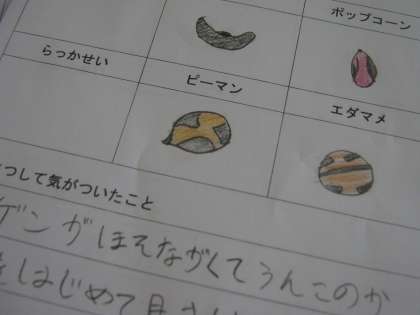 ポップコーン
らっかせい
ピーマン
エダマメ
つして気がついたこと
ゲンがほそながくてうんこのか
はじめて見